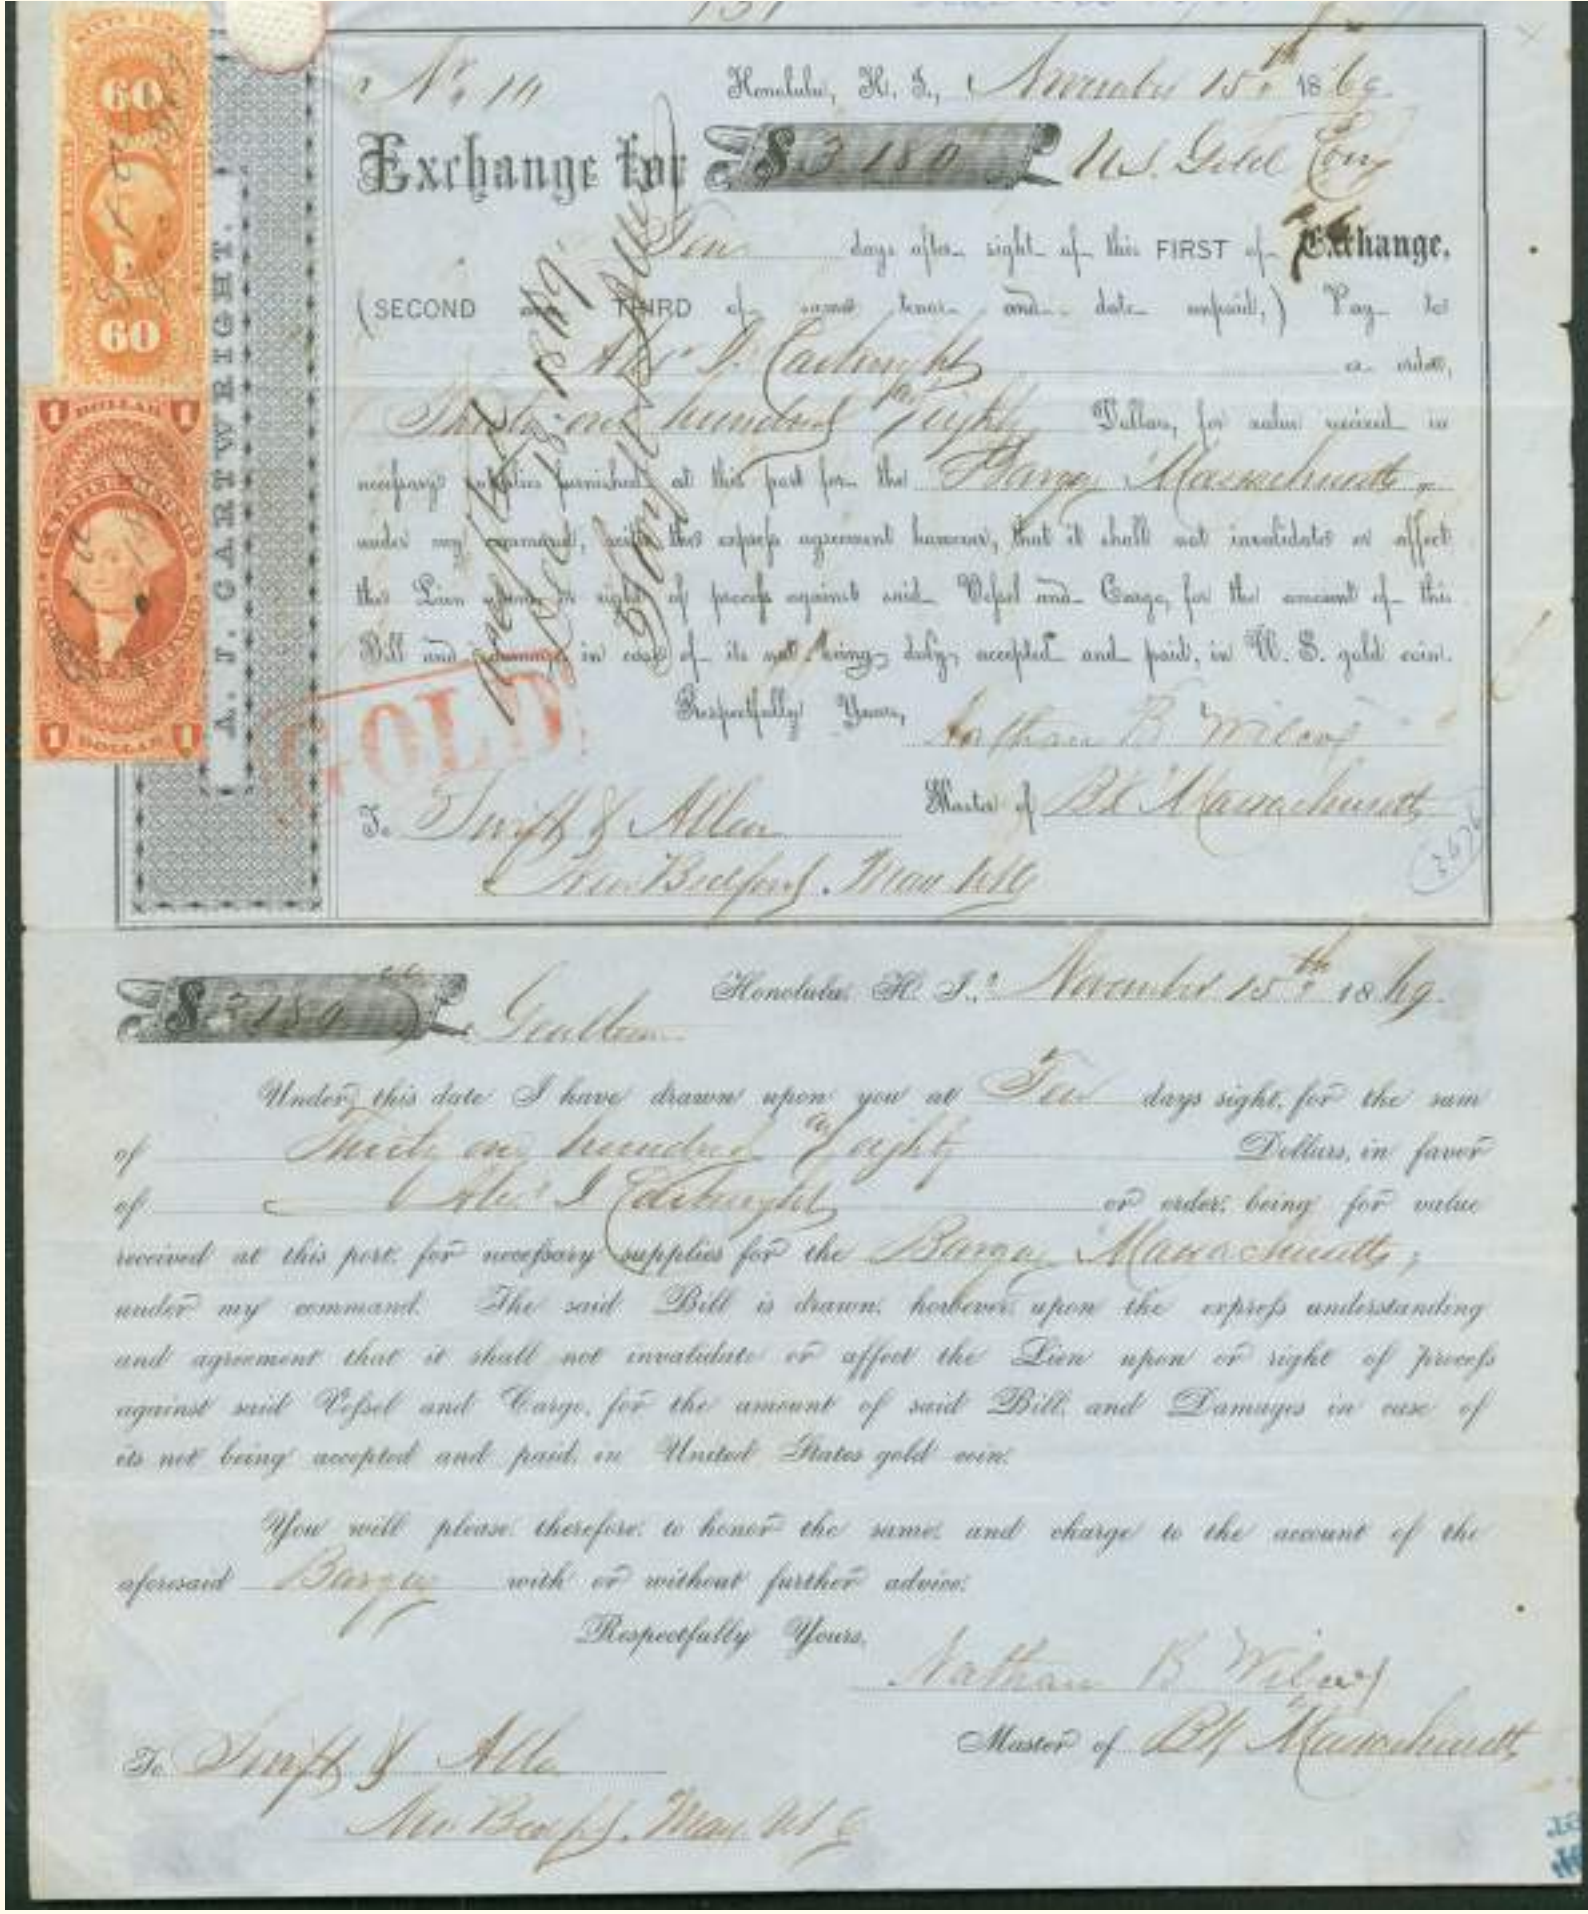 Nº 14 Honolulu, H. I., November 15th 1869.
Exchange for $3180 U.S. Gold Coin
Ten days after sight of this FIRST of Exchange.
(SECOND and THIRD of same tenor and date unpaid,) Pay to
Alexr J. Cartwright or order,
Thirty-one hundred and eighty Dollars, for value received in
necessary supplies furnished at this port for the Barque "Massachusetts"
under my command, with the express agreement however, that it shall not invalidate or affect
the Lien upon or right of process against said Vessel and Cargo, for the amount of this
Bill and damages in case of its not being duly accepted and paid, in U. S. gold coin.
Respectfully Yours,
Nathan B Wilcox
Master of Bk "Massachusetts"
To Swift & Allen
New Bedford. Mass
A. J. CARTWRIGHT.
60
60
1 DOLLAR 1
1 DOLLAR 1
GOLD
$3180 Honolulu, H. I., November 15th 1869.
Gentlemen
Under this date I have drawn upon you at Ten days sight, for the sum
of Thirty one hundred and eighty Dollars, in favor
of Alexr J Cartwright or order, being for value
received at this port, for necessary supplies for the Barque "Massachusetts,"
under my command. The said Bill is drawn, however, upon the express understanding
and agreement that it shall not invalidate or affect the Lien upon or right of process
against said Vessel and Cargo, for the amount of said Bill, and Damages in case of
its not being accepted and paid, in United States gold coin.
You will please, therefore, to honor the same, and charge to the account of the
aforesaid Barque with or without further advice.
Respectfully Yours,
Nathan B Wilcox
Master of Bk "Massachusetts"
To Swift & Allen
New Bedford. Mass